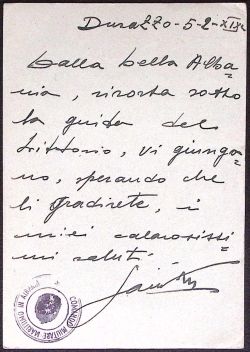 Durazzo - 5 - 2 - XIX
Dalla bella Alba
nia, risorta sotto
la guida del
Littorio, vi giunga
no, sperando che
li gradirete, i
miei calorosissi
mi saluti
COMANDO MILITARE MARITTIMO IN ALBANIA